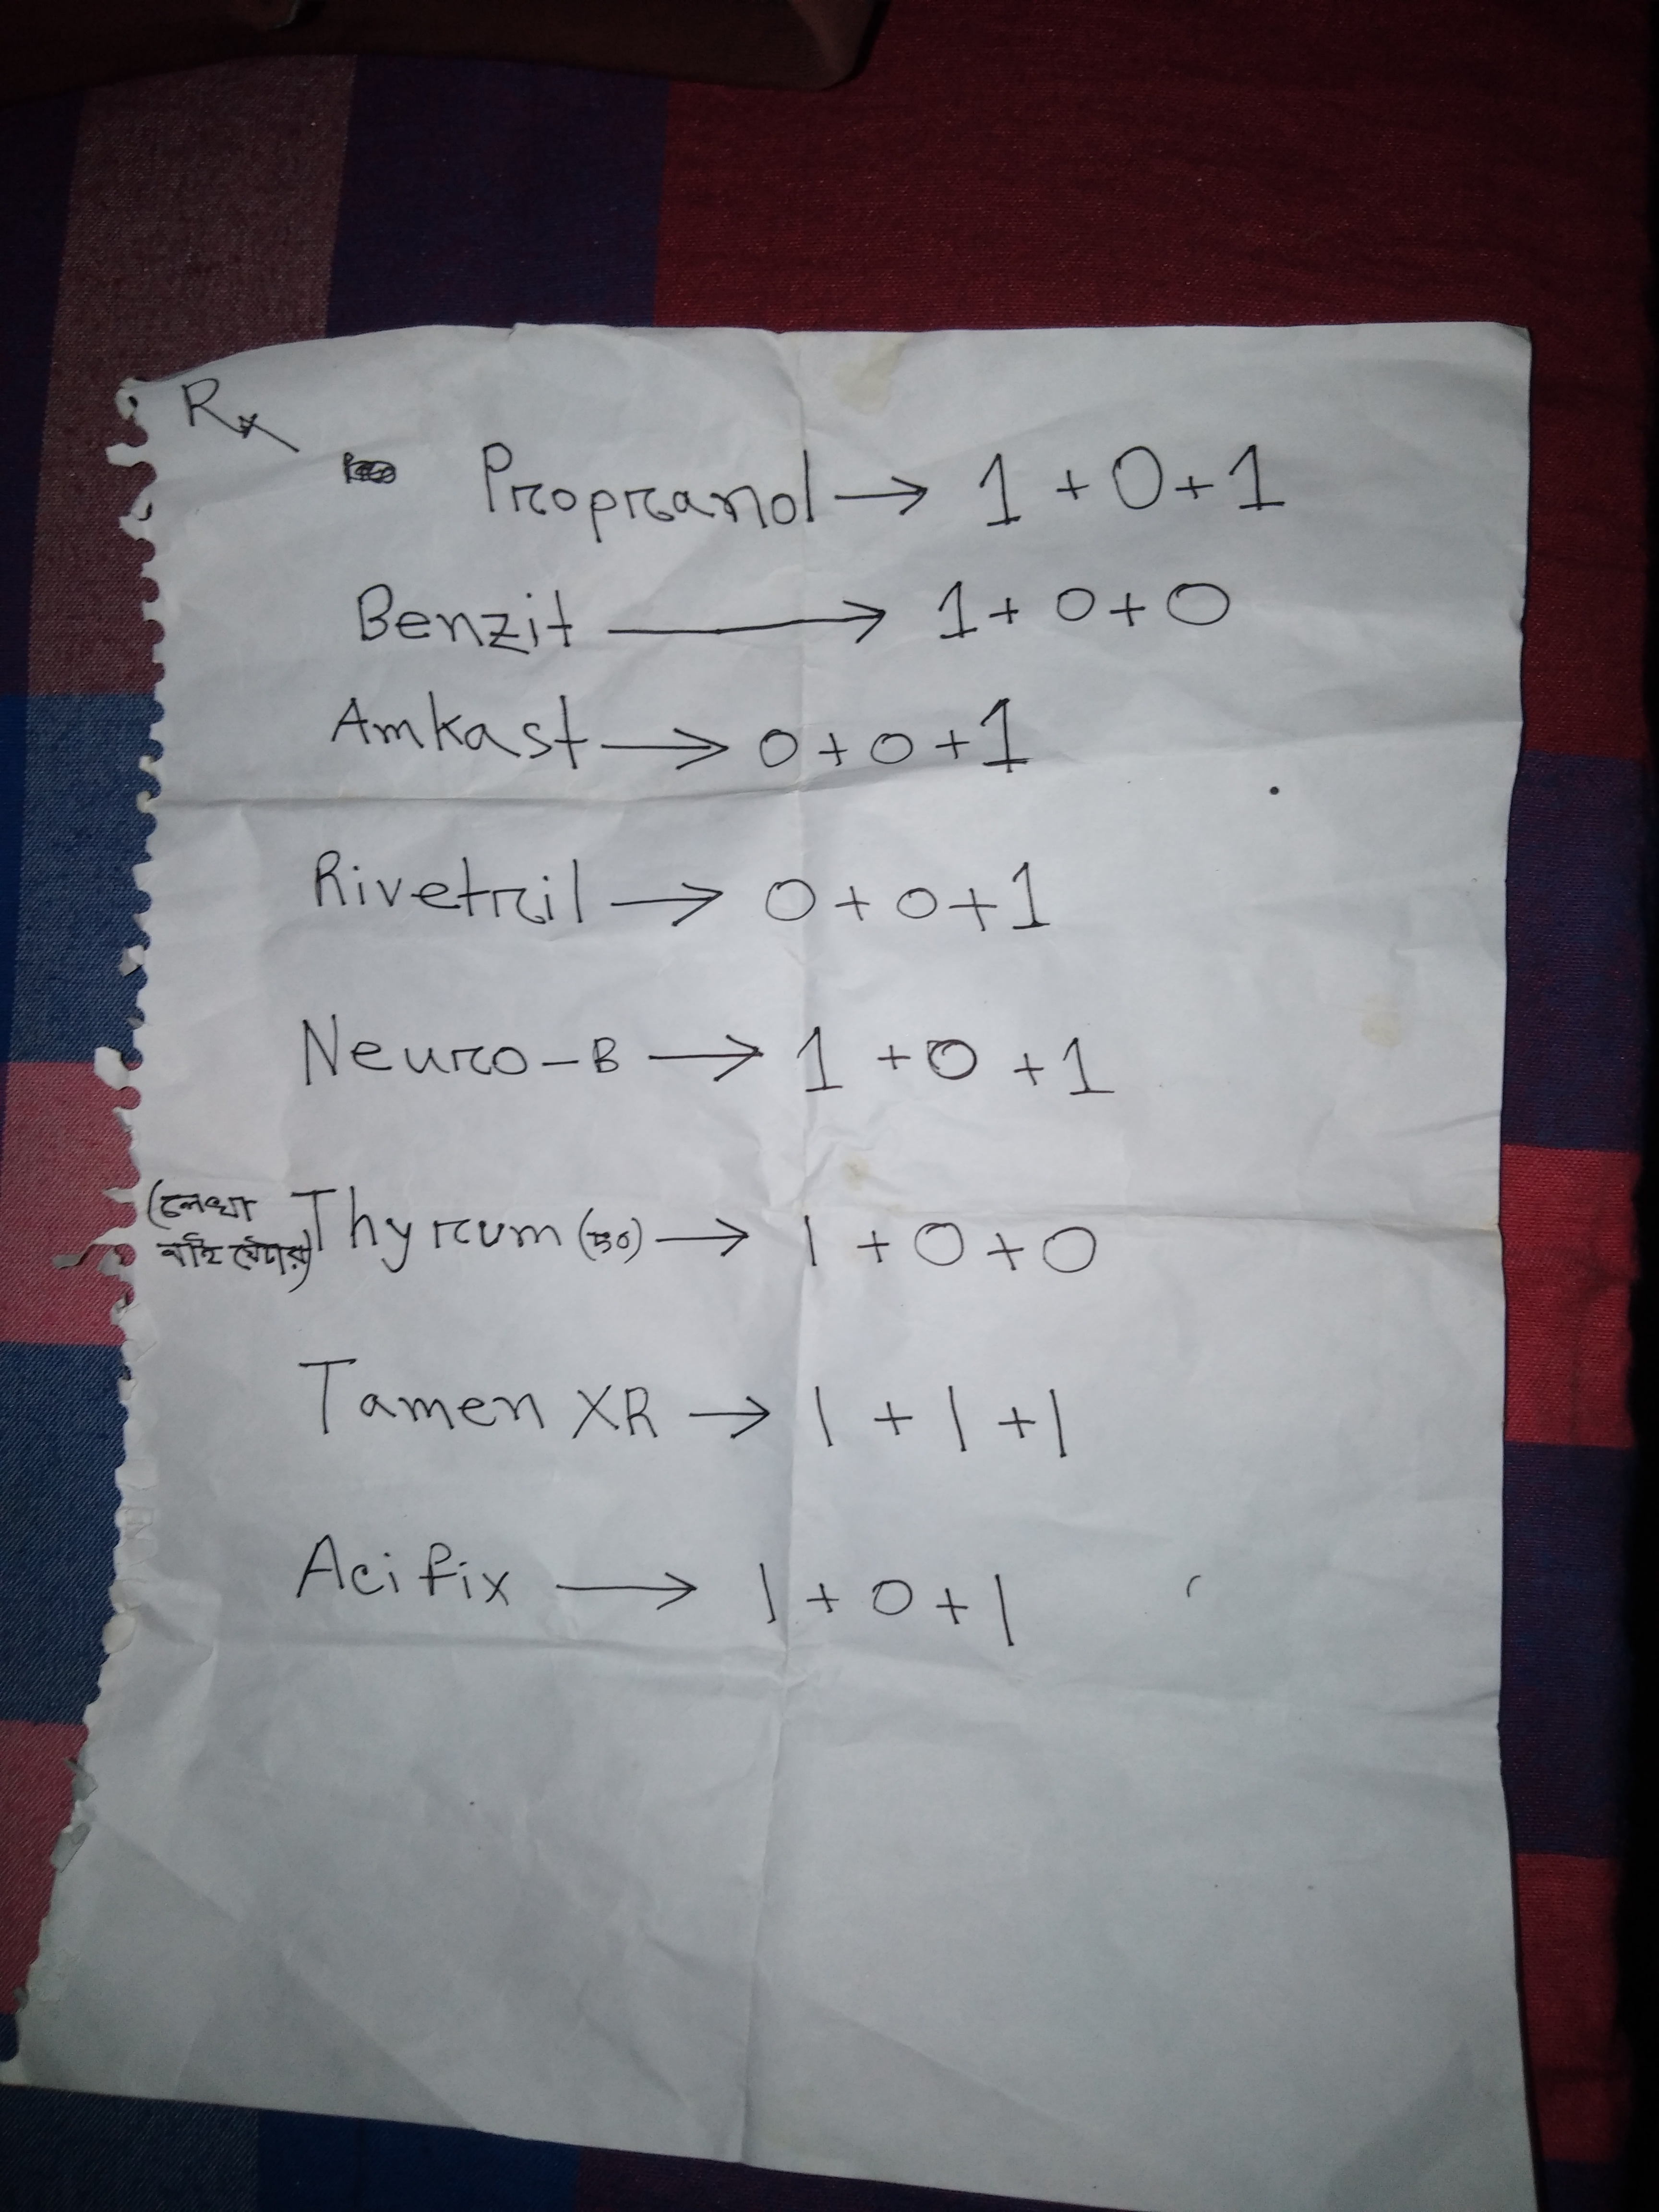 Rx
Propranol → 1 + 0 + 1
Benzit → 1 + 0 + 0
Amkast → 0 + 0 + 1
Rivetril → 0 + 0 + 1
Neuro-B → 1 + 0 + 1
(লেখা
Thyrum (৫০) → 1 + 0 + 0
Tamen XR → 1 + 1 + 1
Acifix → 1 + 0 + 1